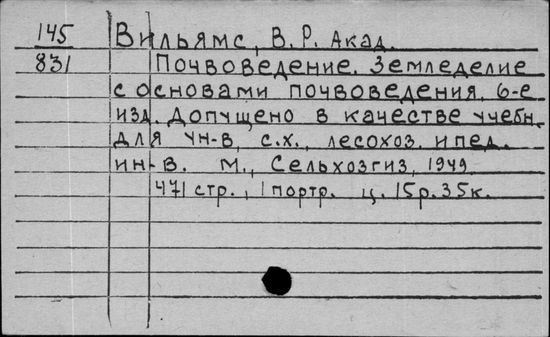 145 Вильямс, В.Р. Акад.
831 Почвоведение. Земледелие
с основами почвоведения. 6-е
изд. Допущено в качестве учебн.
для ун-в, с.х., лесохоз. и пед.
ин-в. М., Сельхозгиз, 1949.
471 стр., 1 портр. ц. 15р.35к.